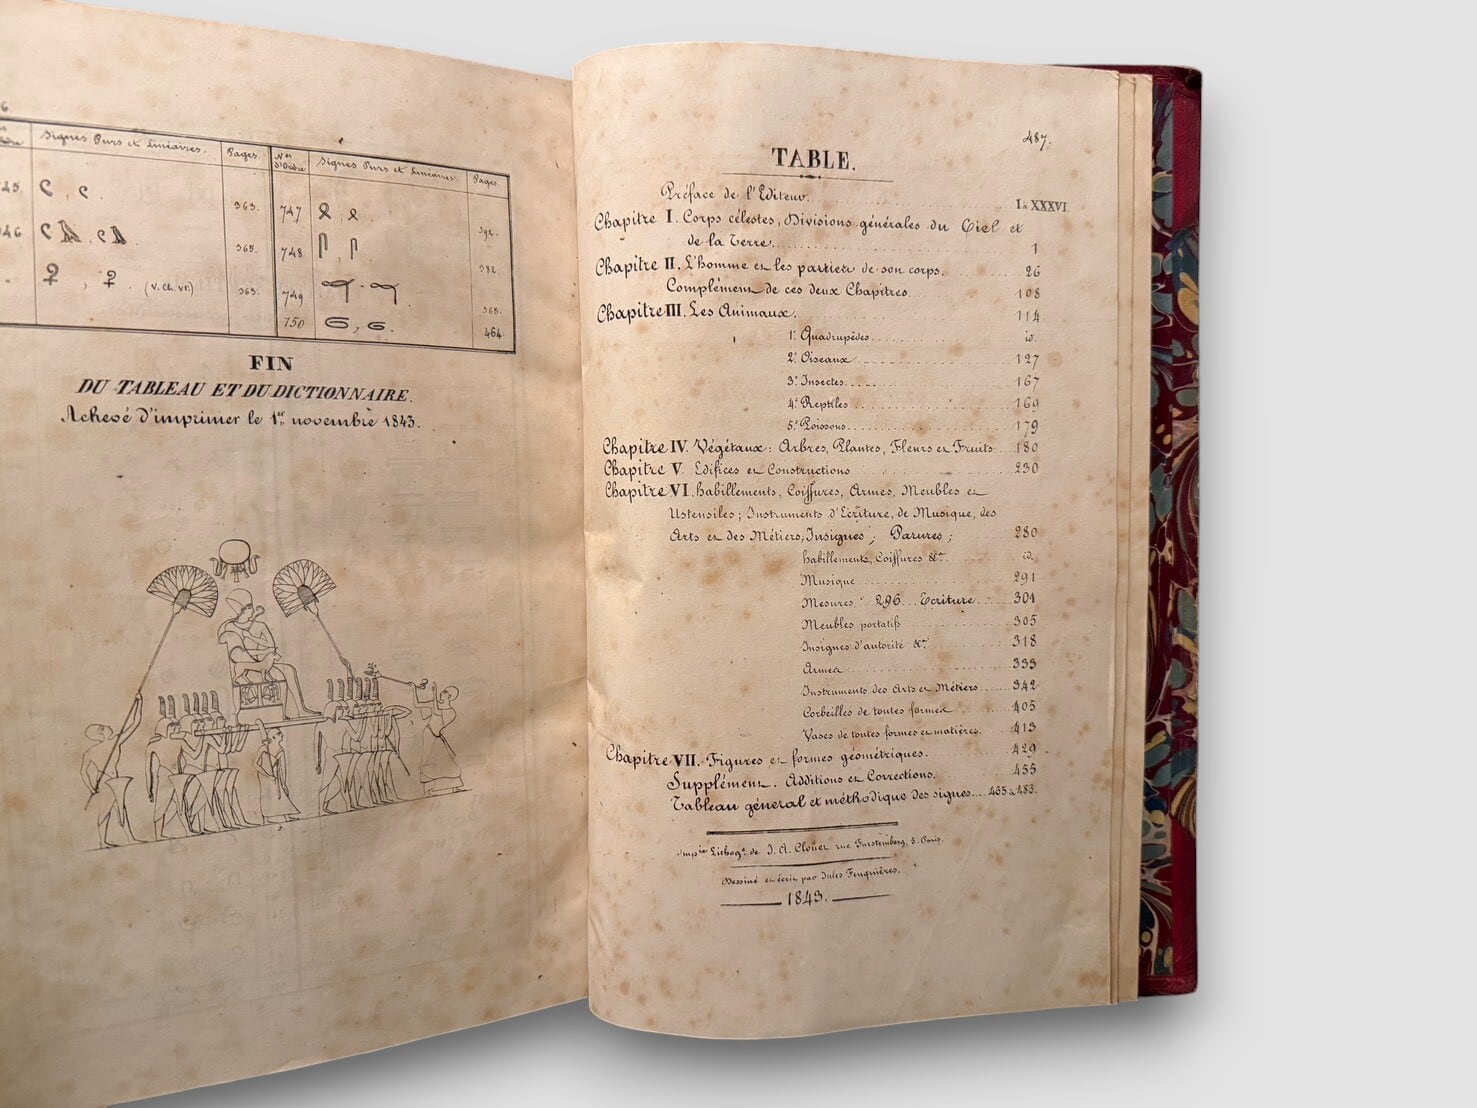 Signes Purs et Linéaires. Pages. Nos d'Ordre Signes Purs et Linéaires. Pages.
363. 747 392.
365. 748 382.
(v. ch. VI.) 363. 749 365.
750 464.
FIN
DU TABLEAU ET DU DICTIONNAIRE.
Achevé d'imprimer le 1er novembre 1843.
487.
TABLE.
Préface de l'Editeur. I à XXXVI
Chapitre I. Corps célestes, Divisions générales du Ciel et
de la Terre 1
Chapitre II. L'homme et les parties de son corps. 26
Complément de ces deux Chapitres. 108
Chapitre III. Les Animaux. 114
1.° Quadrupèdes id.
2.° Oiseaux 127
3.° Insectes 167
4.° Reptiles 169
5.° Poissons 179
Chapitre IV. Végétaux: Arbres, Plantes, Fleurs et Fruits 180
Chapitre V. Edifices et Constructions 230
Chapitre VI. habillements, Coiffures, Armes, Meubles et
Ustensiles; Instruments d'Ecriture, de Musique, des
Arts et des Métiers; Insignes; Parures; 280
habillements, Coiffures &a id.
Musique 291
Mesures. 296 Ecriture. 301
Meubles portatifs 305
Insignes d'autorité &a 318
Armes 333
Instruments des Arts et Métiers 342
Corbeilles de toutes formes 405
Vases de toutes formes et matières. 413
Chapitre VII. Figures et formes géométriques. 429
Supplément. Additions et Corrections. 455
Tableau général et méthodique des signes 465 à 485.
Lithog. de J. A. Clouet rue Furstemberg, 3. Paris.
Dessiné et écrit par Jules Feuquières.
1843.